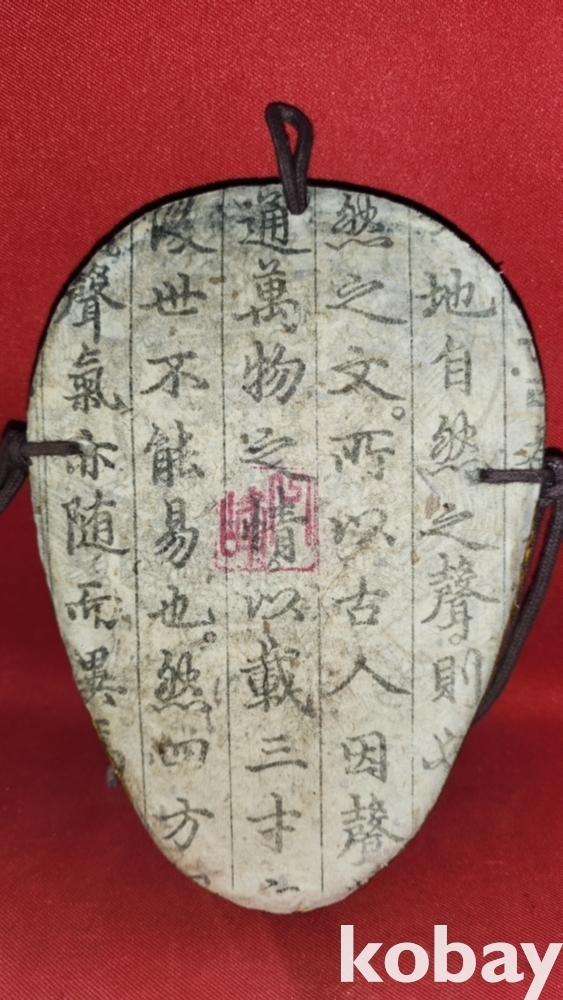 地自然之聲則必
然之文。所以古人因聲
通萬物之情。以載三才之
後世不能易也。然四方
聲氣亦随而異焉
kobay